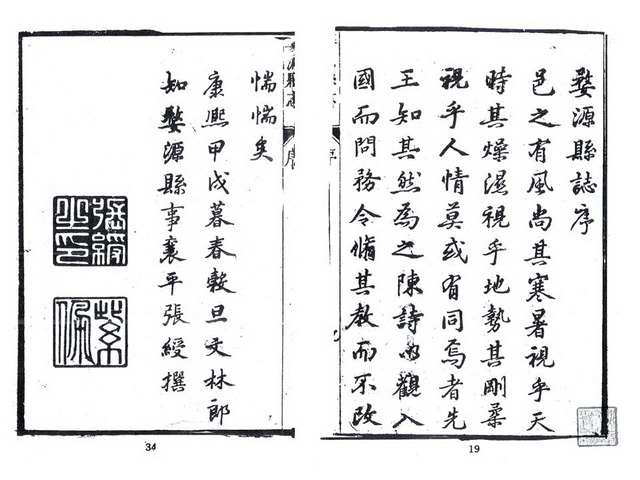 婺源縣誌序
邑之有風尚其寒暑視乎天
時其燥濕視乎地勢其剛柔
視乎人情莫或有同焉者先
王知其然為之陳詩以觀入
國而問務令脩其教而不改
序
19
婺源縣志
序
惴惴矣
康熙甲戌暮春穀旦文林郎
知婺源縣事襄平張綬撰
張綬之印
34